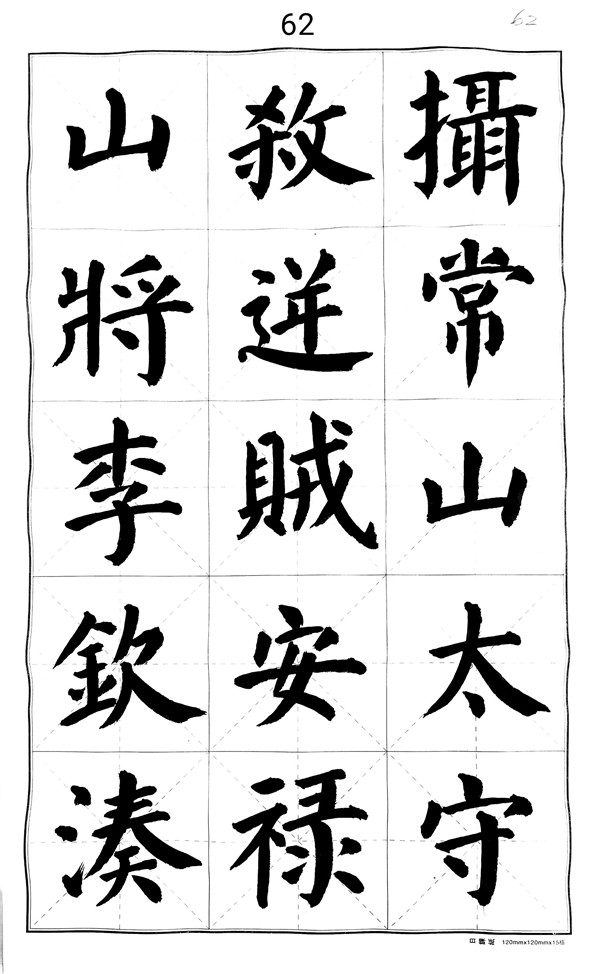 62
62
攝常山太守
殺逆賊安禄
山將李欽湊
120mmx120mmx15